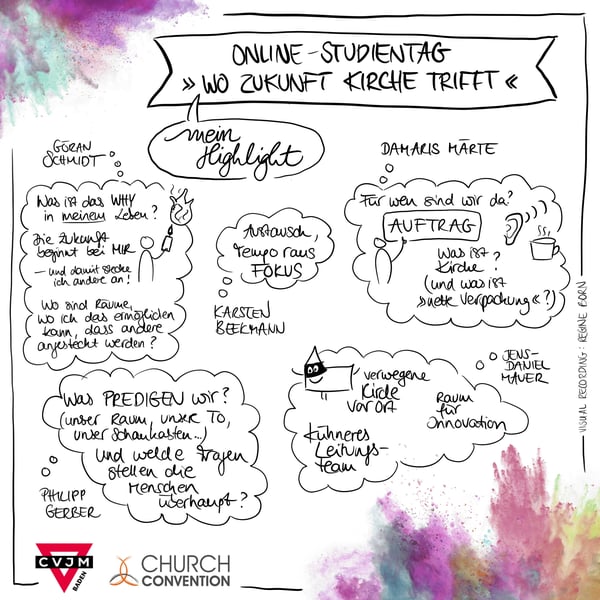 ONLINE-STUDIENTAG
» WO ZUKUNFT KIRCHE TRIFFT «
mein
Highlight
GÖRAN
SCHMIDT
Was ist das WHY
in meinem Leben?
Die Zukunft
beginnt bei MIR
– und damit stecke
ich andere an!
Wo sind Räume,
wo ich das ermöglichen
kann, dass andere
angesteckt werden?
Austausch,
Tempo raus
FOKUS
KARSTEN
BEEKMANN
DAMARIS MÄRTE
Für wen sind wir da?
AUFTRAG
Was ist
Kirche?
(und was ist
»nette Verpackung«?)
Was PREDIGEN wir?
(unser Raum, unsere TO,
unser Schaukasten...)
und welche Fragen
stellen die
Menschen
überhaupt?
PHILIPP
GERBER
verwegene
Kirche
vor Ort
Raum
für
Innovation
Kühneres
Leitungs-
team
JENS-
DANIEL
MAUER
VISUAL RECORDING: REGINE BORN
CVJM
BADEN
CHURCH
CONVENTION